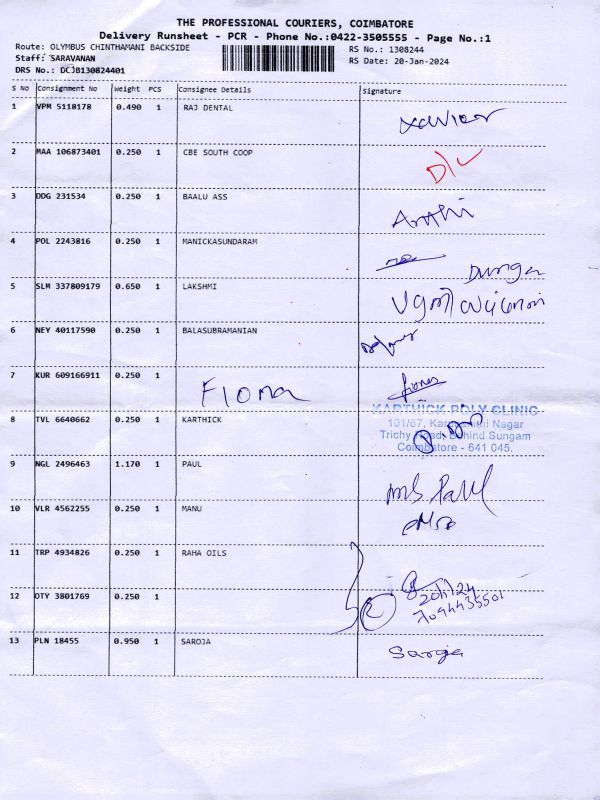 THE PROFESSIONAL COURIERS, COIMBATORE
Delivery Runsheet - PCR - Phone No.:0422-3505555 - Page No.:1
Route: OLYMBUS CHINTHAMANI BACKSIDE RS No.: 1308244
Staff: SARAVANAN RS Date: 20-Jan-2024
DRS No.: DCJB130824401
S No Consignment No Weight PCS Consignee Details Signature
1 VPM 5118178 0.490 1 RAJ DENTAL Xavier
2 MAA 106873401 0.250 1 CBE SOUTH COOP D/L
3 DDG 231534 0.250 1 BAALU ASS Arthi
4 POL 2243816 0.250 1 MANICKASUNDARAM
Durga
5 SLM 337809179 0.650 1 LAKSHMI
6 NEY 40117590 0.250 1 BALASUBRAMANIAN
7 KUR 609166911 0.250 1 Fiona
KARTHICK POLY CLINIC
8 TVL 6640662 0.250 1 KARTHICK
Trichy Road, Behind Sungam
Coimbatore - 641 045.
9 NGL 2496463 1.170 1 PAUL Paul
10 VLR 4562255 0.250 1 MANU
11 TRP 4934826 0.250 1 RAHA OILS
20/1/24
12 OTY 3801769 0.250 1
13 PLN 18455 0.950 1 SAROJA Saroja